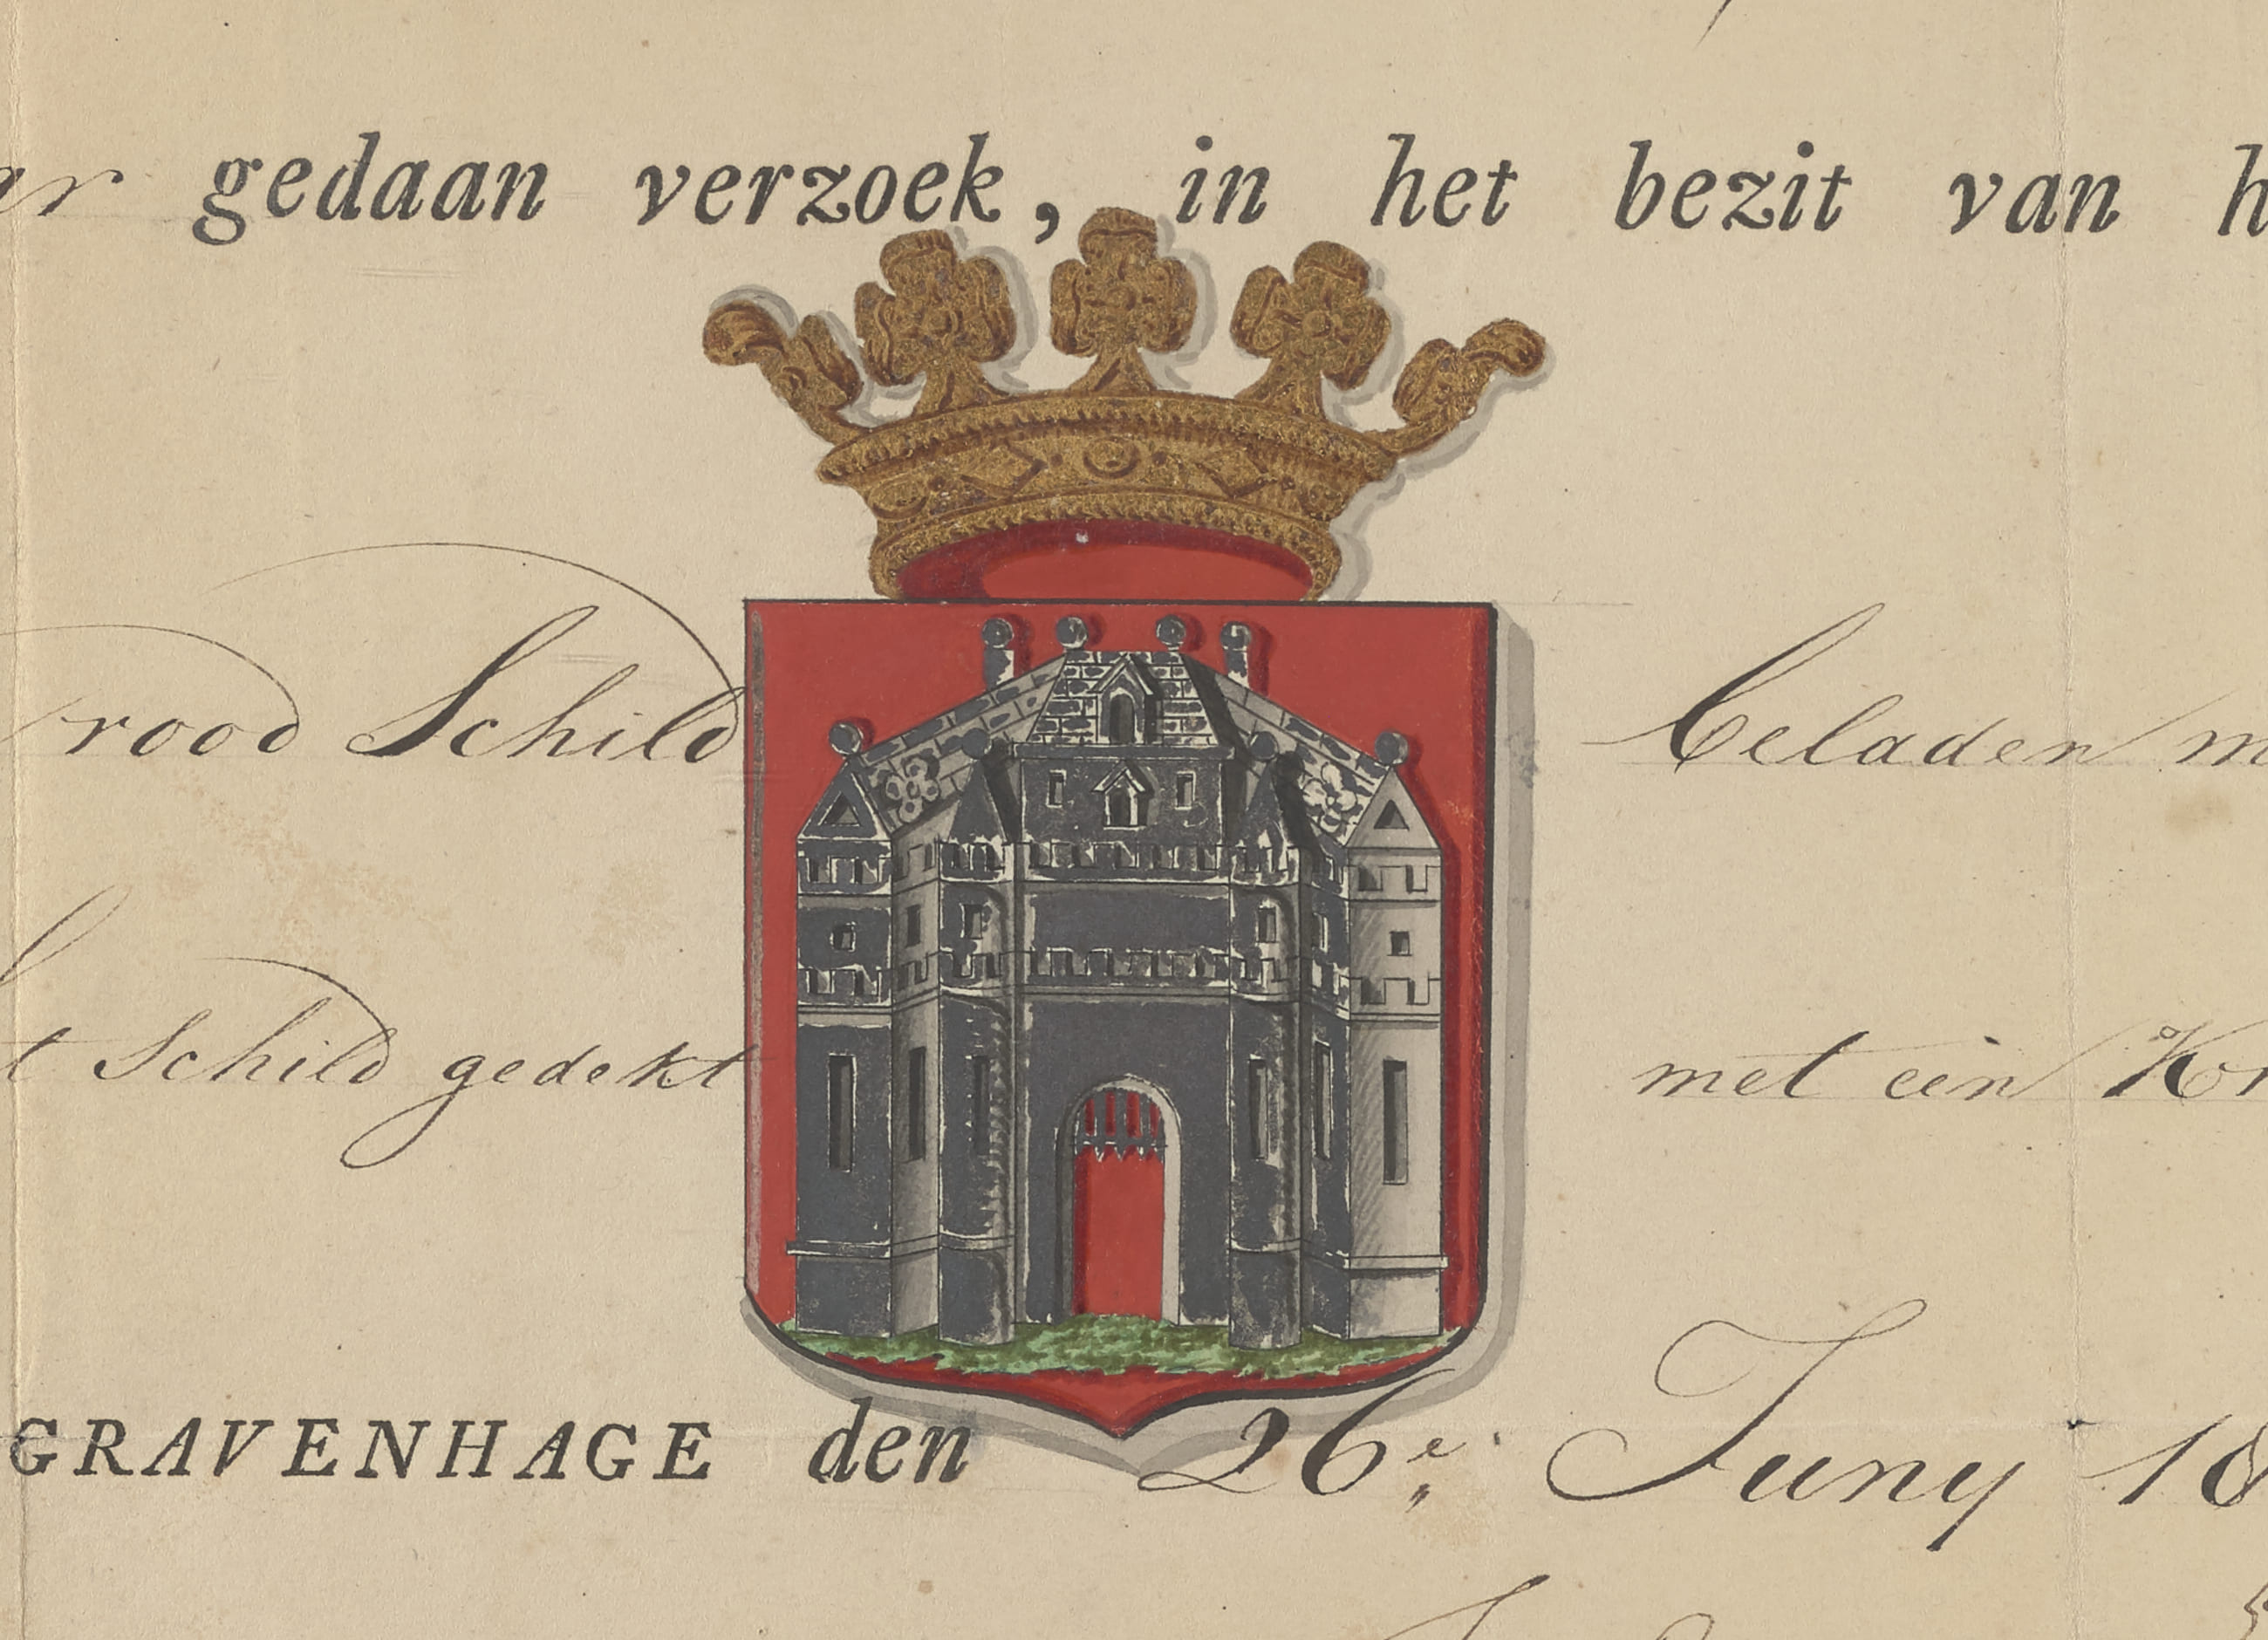 gedaan verzoek, in het bezit van h
rood Schild beladen m
t Schild gedekt met een Kr
GRAVENHAGE den 26e Juny 18